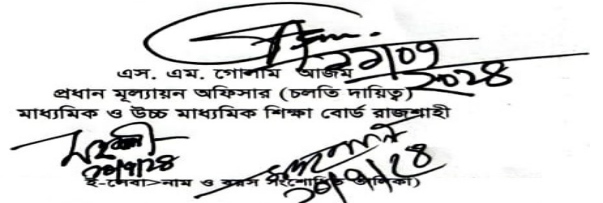 ২২|০৭
২০২৪
এস. এম. গোলাম আজম
প্রধান মূল্যায়ন অফিসার (চলতি দায়িত্ব)
মাধ্যমিক ও উচ্চ মাধ্যমিক শিক্ষা বোর্ড রাজশাহী
ই-সেবা>নাম ও বয়স সংশোধিত তালিকা)